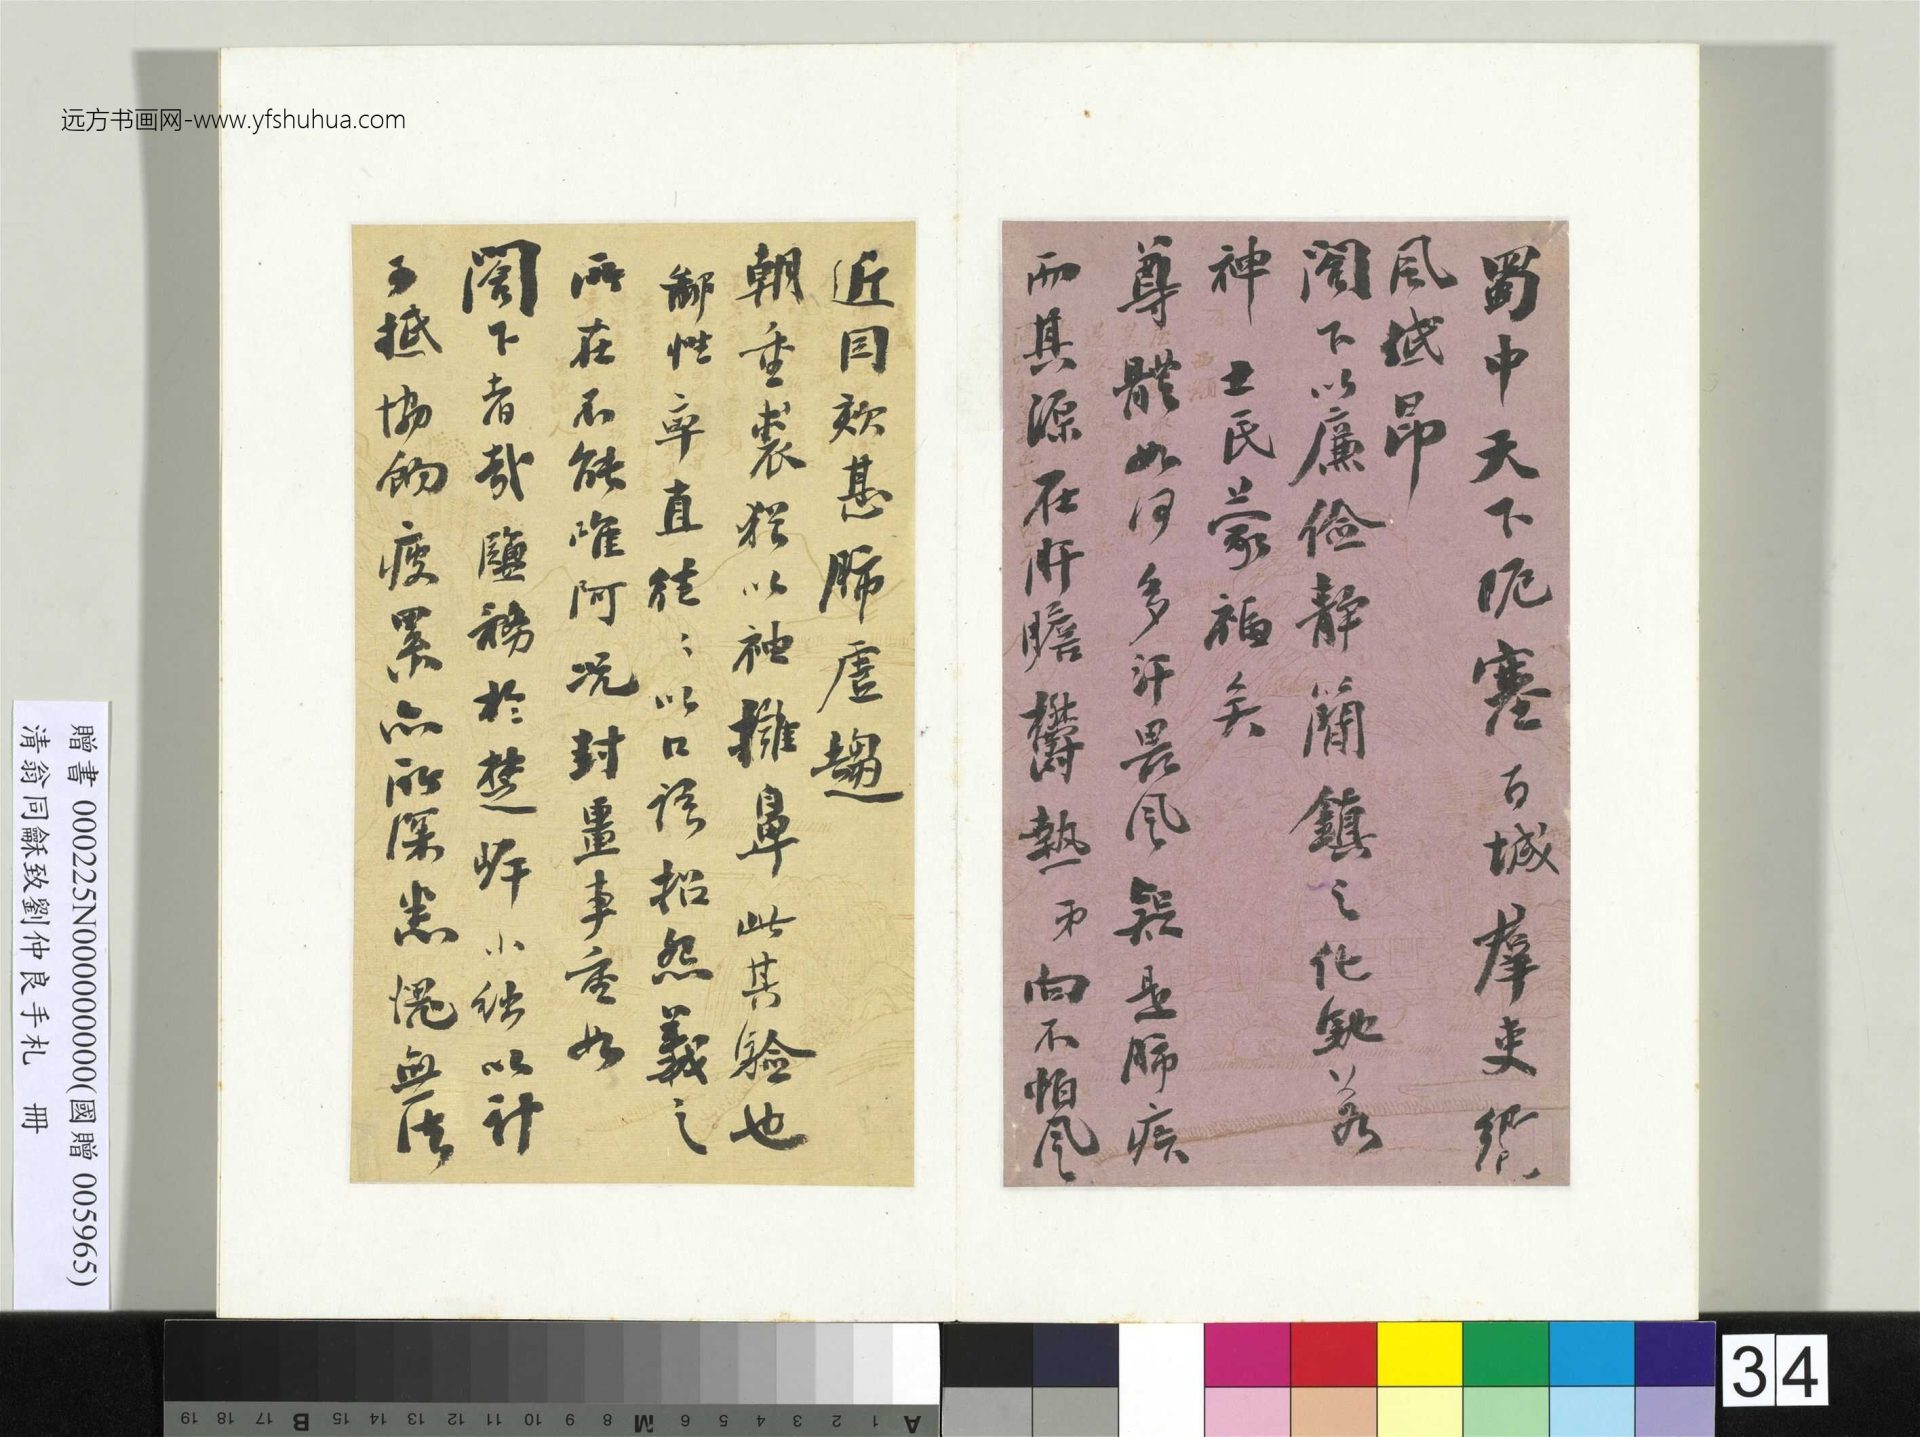 远方书画网-www.yfshuhua.com
蜀中天下阨塞百城群吏望
風低昂
閣下以廉儉静簡鎮之化馳若
神士民蒙福矣
尊體如何多汗畏風疑是肺疾
而其源在肝膽鬱熱弟向不怕風
近因欬甚肺虛趨
朝重裘猶以袖擁鼻此其驗也
鄙性率直往々以口語招怨義之
所在不能唯阿况封疆事重如
閣下者哉鹽務於楚岸小絀以計
子抵協餉疲累亦所深悉愧無法
贈書 000225N000000000(國贈 005965)
清翁同龢致劉仲良手札 冊
34
A 1 2 3 4 5 6 M 8 9 10 11 12 13 14 15 B 17 18 19